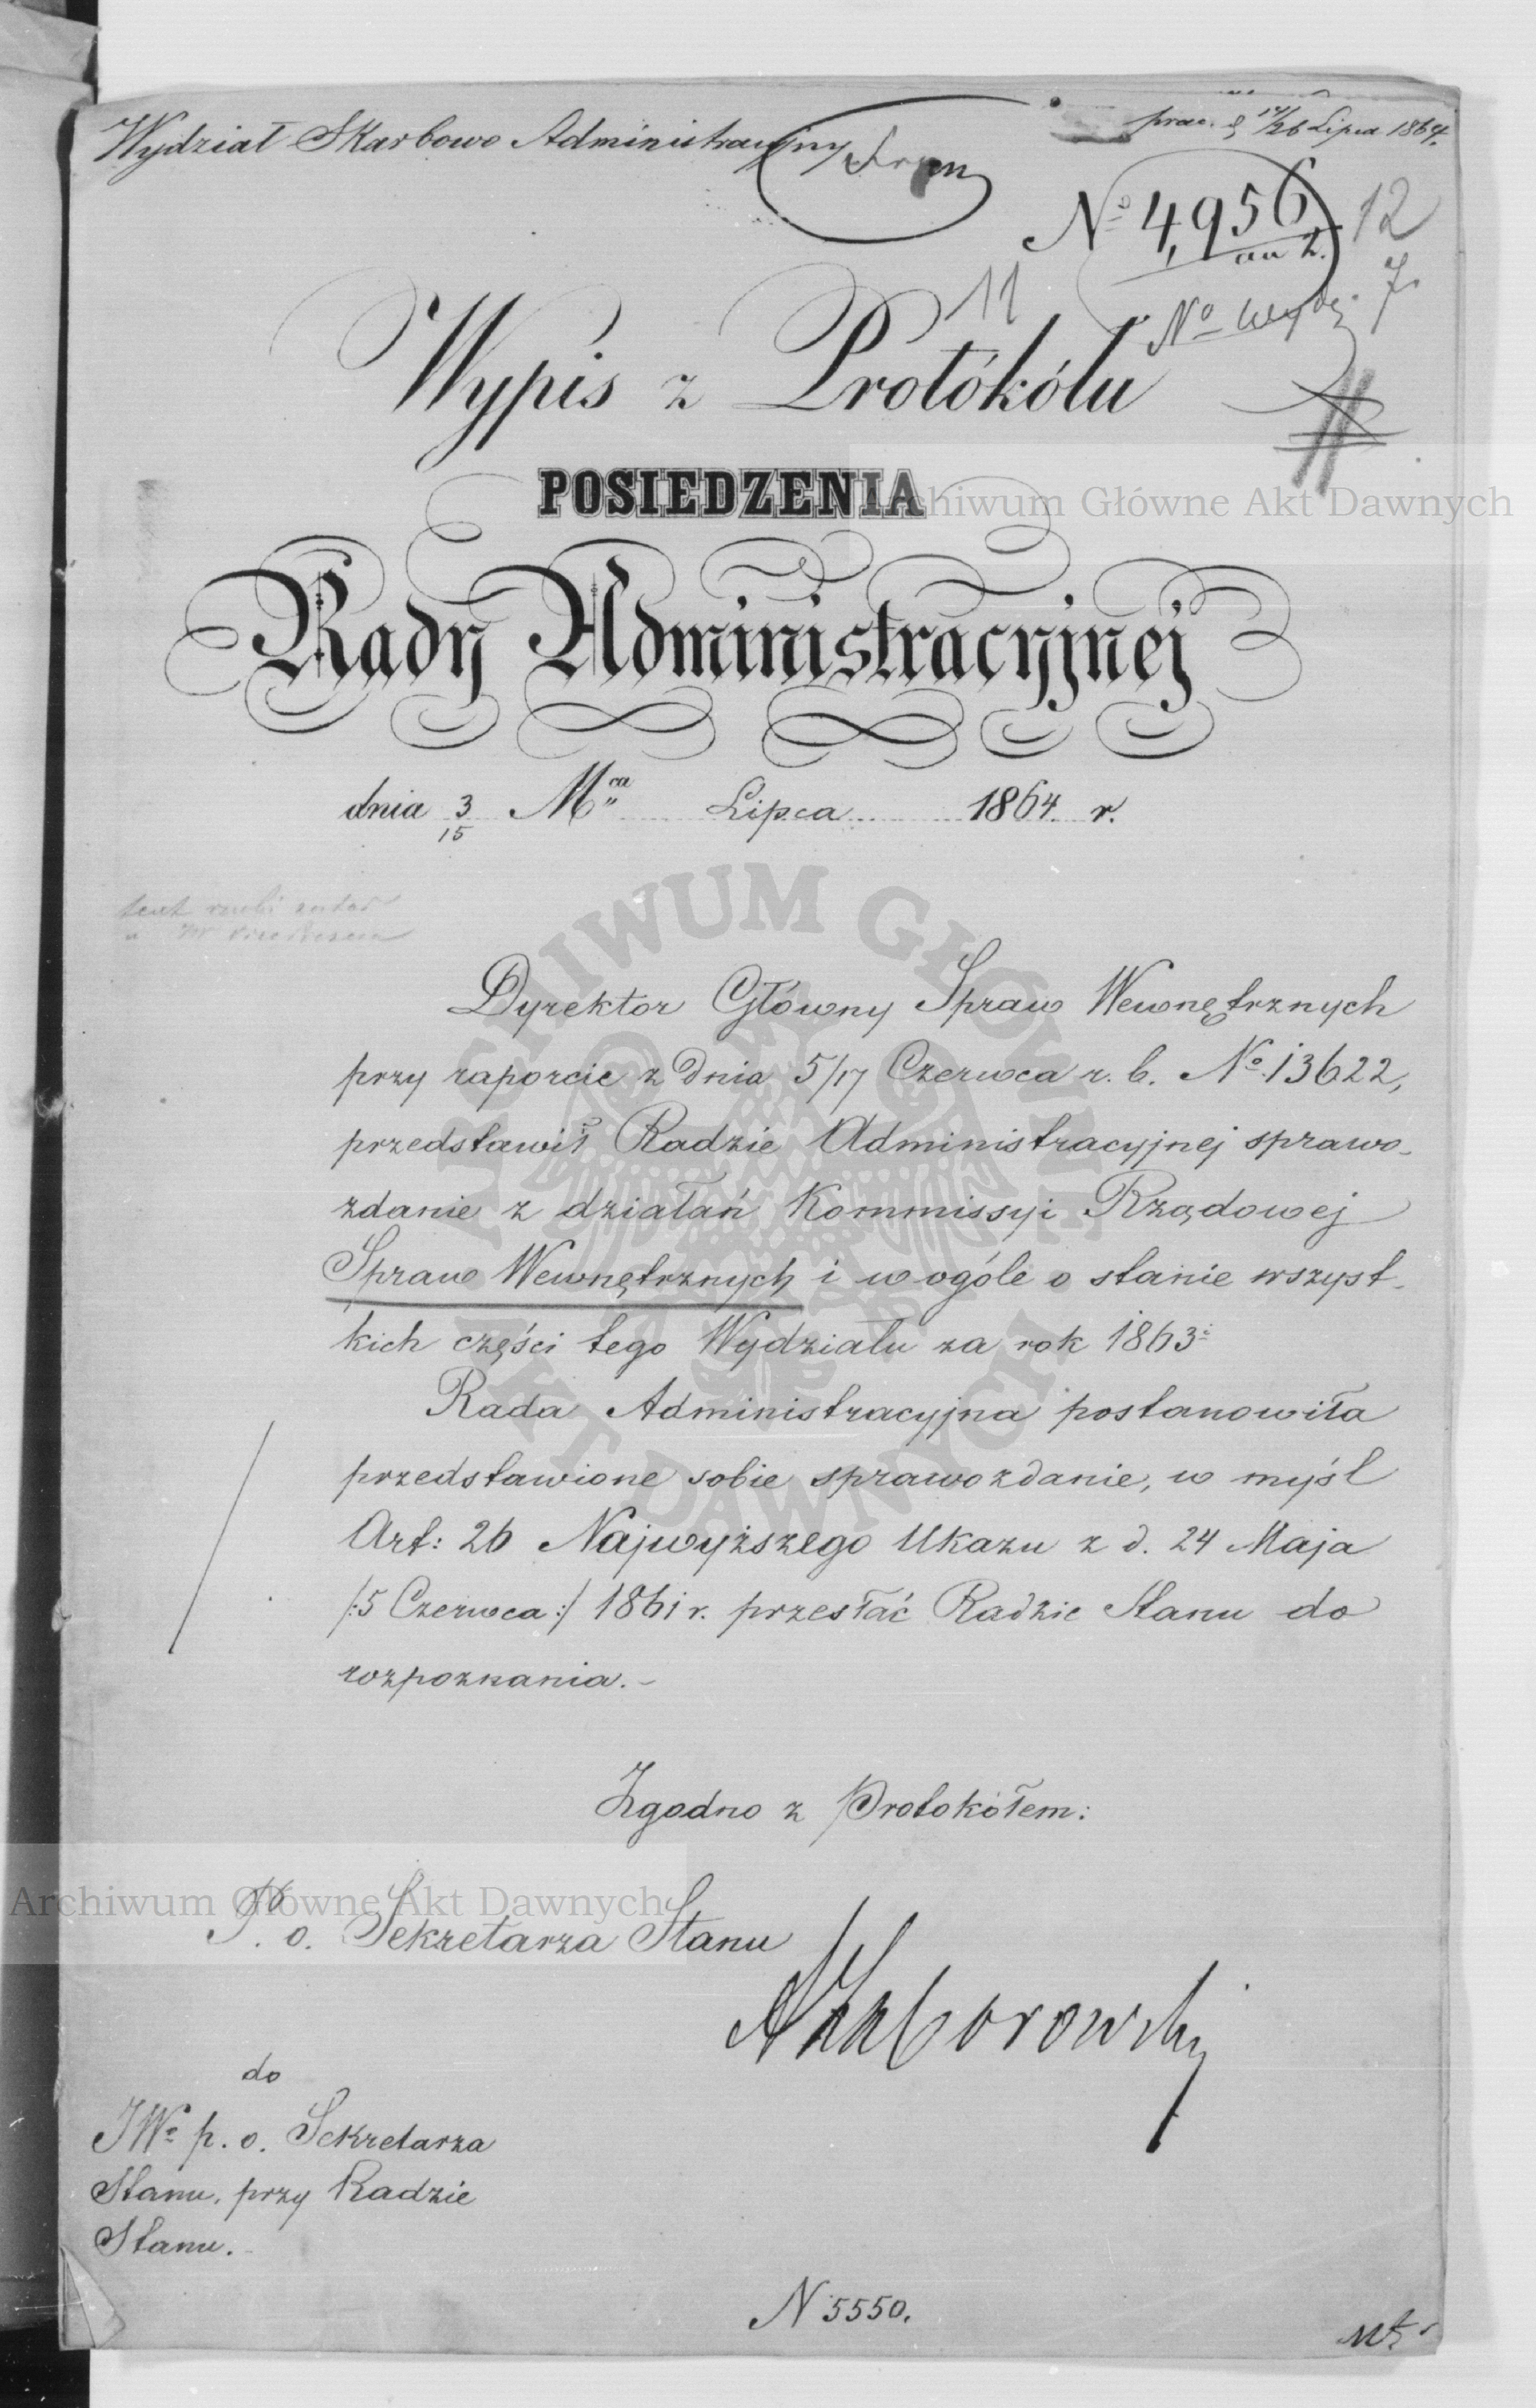 Wydział Skarbowo Administracyjny
prac. d 14/26 Lipca 1864.
No 4,956
12
No
7
11
Wypis z Protókółu
POSIEDZENIA
Rady Administracyjnej
dnia 3/15 Mca Lipca 1864 r.
Dyrektor Główny Spraw Wewnętrznych
przy raporcie z dnia 5/17 Czerwca r. b. No 13622,
przedstawił Radzie Administracyjnej sprawo-
zdanie z działań Kommissyi Rządowej
Spraw Wewnętrznych i w ogóle o stanie wszyst-
kich części tego Wydziału za rok 1863:
Rada Administracyjna postanowiła
przedstawione sobie sprawozdanie, w myśl
Art: 26 Najwyższego Ukazu z d. 24 Maja
/:5 Czerwca:/ 1861 r. przesłać Radzie Stanu do
rozpoznania.-
Zgodno z Protokółem:
P. o. Sekretarza Stanu
do
JWo p. o. Sekretarza
Stanu, przy Radzie
Stanu.-
N 5550.
Archiwum Główne Akt Dawnych
ARCHIWUM GŁÓWNE AKT DAWNYCH
Archiwum Główne Akt Dawnych